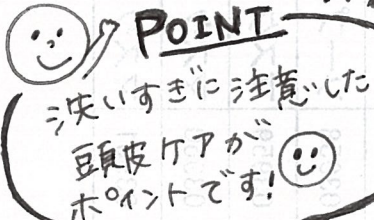 POINT
洗いすぎに注意した
頭皮ケアが
ポイントです!